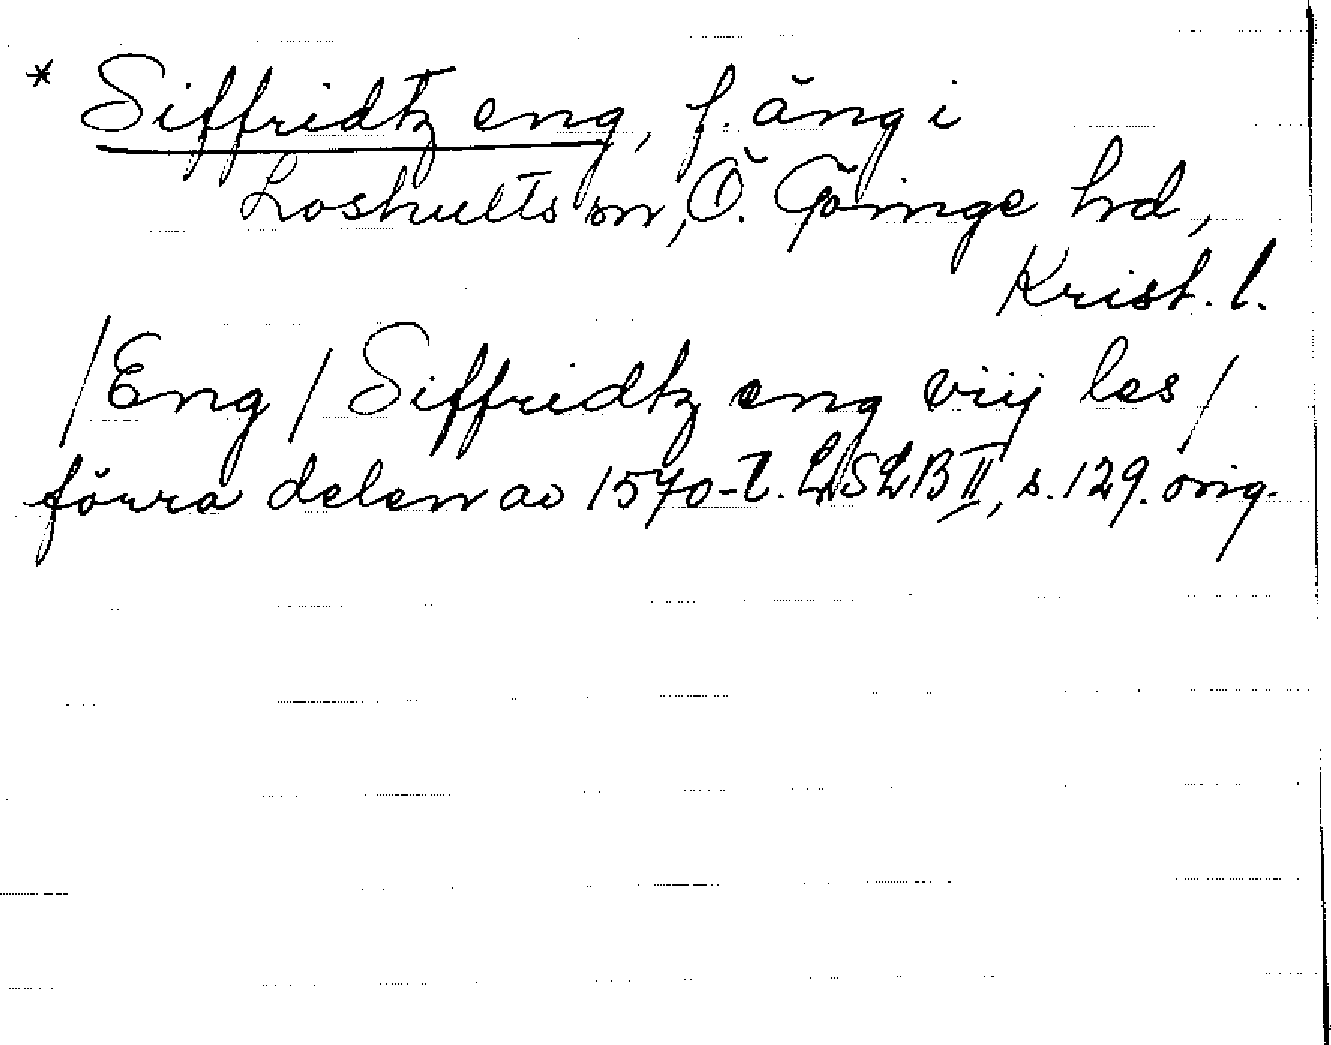 * Siffridtz eng, f. äng i
Loshults sn, Ö. Göinge hd,
Krist. l.
/Eng/ Siffridtz eng viij les/
förra delen av 1570-t. LSLB II, s. 129. orig.